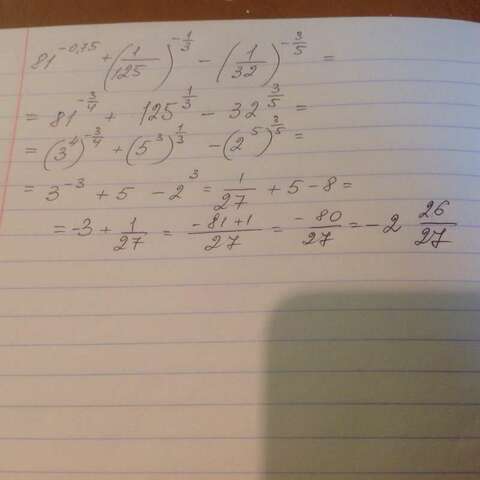 81^{-0,75} + (1/125)^{-1/3} - (1/32)^{-3/5} =
= 81^{-3/4} + 125^{1/3} - 32^{3/5} =
= (3^4)^{-3/4} + (5^3)^{1/3} - (2^5)^{3/5} =
= 3^{-3} + 5 - 2^3 = 1/27 + 5 - 8 =
= -3 + 1/27 = (-81+1)/27 = (-80)/27 = -2 26/27